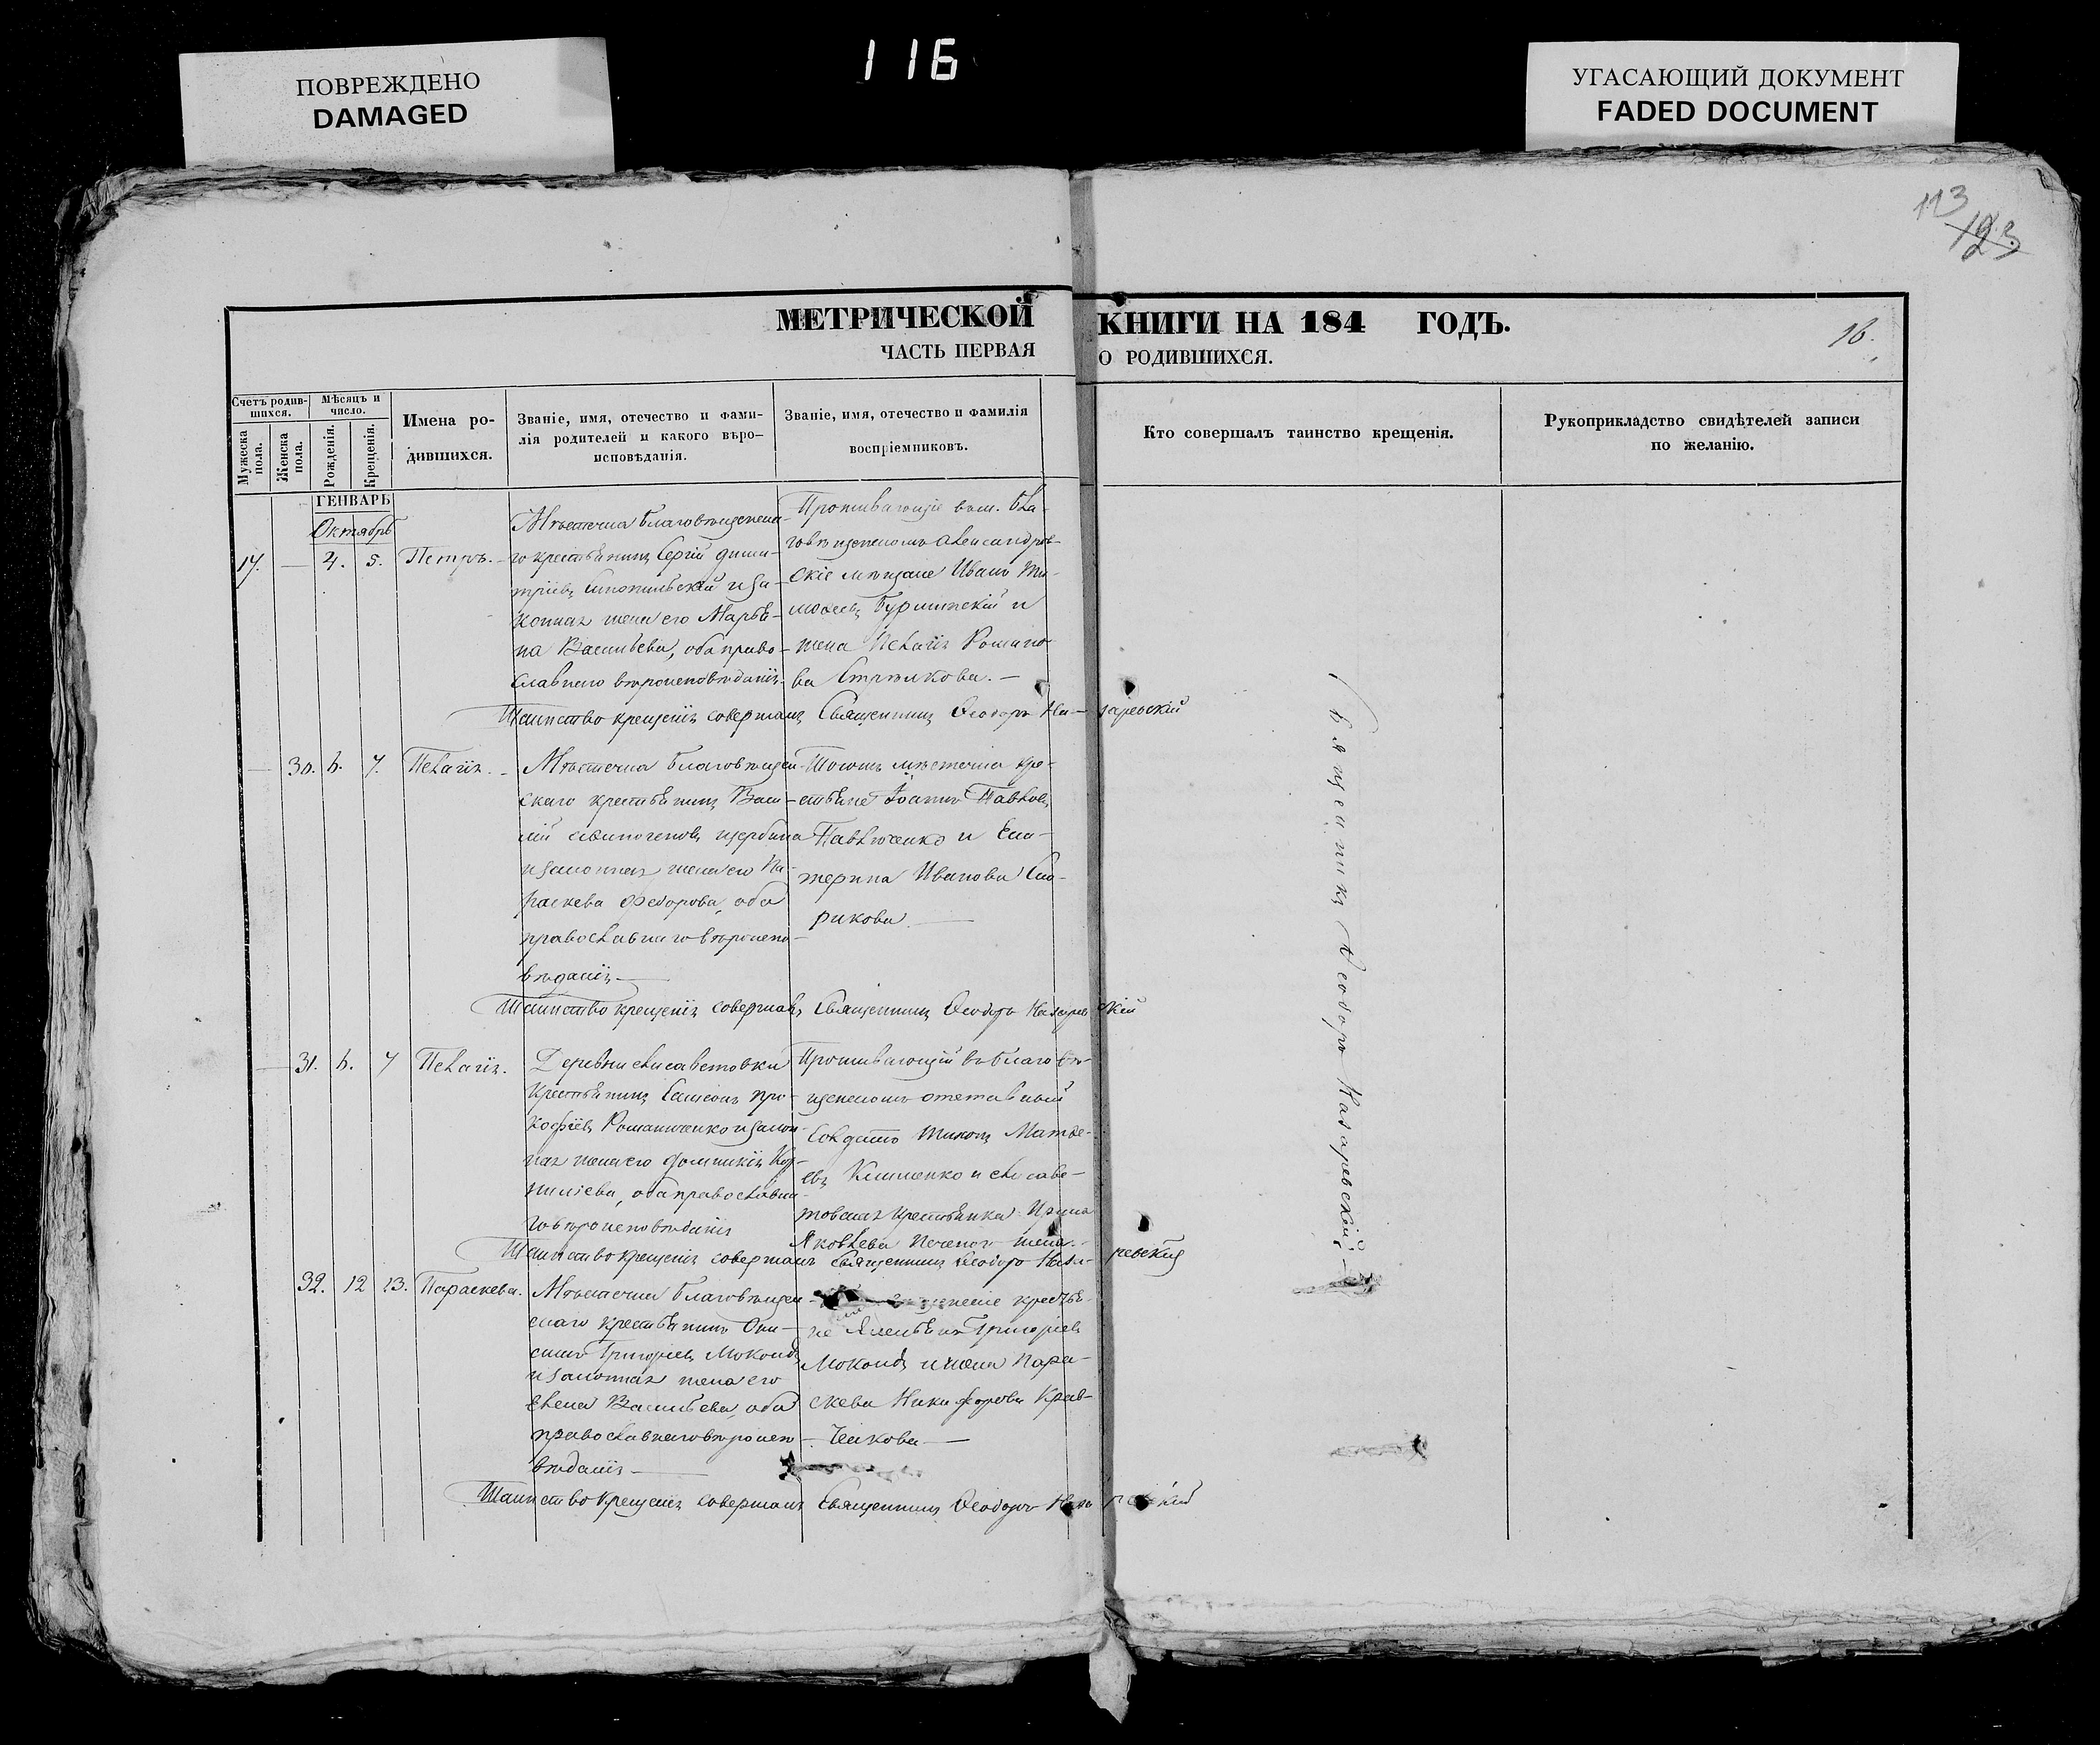 116
ПОВРЕЖДЕНО
DAMAGED
УГАСАЮЩИЙ ДОКУМЕНТ
FADED DOCUMENT
113
123
МЕТРИЧЕСКОЙ КНИГИ НА 184 ГОДЪ.
16.
ЧАСТЬ ПЕРВАЯ О РОДИВШИХСЯ.
Счетъ родив-
шихся.
Мѣсяцъ и
число.
Мужеска
пола.
Женска
пола.
Рожденія.
Крещенія.
Имена ро-
дившихся.
Званіе, имя, отечество и фами-
лія родителей и какого вѣро-
исповѣданія.
Званіе, имя, отечество и фамилія
воспріемниковъ.
Кто совершалъ таинство крещенія.
Рукоприкладство свидѣтелей записи
по желанію.
ГЕНВАРЬ
Октябрь
4. 5. Петръ.
Мѣстечка Благовѣщенска-
го крестьянинъ Сергій Дими-
тріевъ и за-
конная жена его Марьѣ-
на Васильева, оба право-
славнаго вѣроисповѣданія.
Проживающіе въ м. Бла-
говѣщенскомъ Александров-
скіе мѣщане Иванъ Ти-
моѳеевъ и
жена Пелагія Романо-
ва Стрѣлкова. —
Таинство крещенія совершалъ Священникъ Ѳеодоръ Назаревскій
30. 6. 7. Пелагія.
Мѣстечка Благовѣщен-
скаго крестьянинъ Васи-
лій Щербина
и законная жена его Па-
раскева Федорова, оба
православнаго вѣроиспо-
вѣданія —
Тогожъ мѣстечка кре-
стьяне Іоаннъ Павловъ
Павлюченко и Ека-
терина Иванова Ска-
рикова —
Таинство крещенія совершалъ Священникъ Ѳеодоръ Назаревскій
31. 6. 7 Пелагія.
Деревни Елисаветовки
крестьянинъ Самсонъ Про-
кофіевъ Романченко и закон-
ная жена его Домникія Кор-
ниліева, оба православна-
го вѣроисповѣданія
Проживающій въ Благовѣ-
щенскомъ отставный
солдатъ Тихонъ Матвѣ-
евъ Клименко и Елисаве-
товская крестьянка Ирина
Яковлева жена. —
Таинство крещенія совершалъ Священникъ Ѳеодоръ Назаревскій
32. 12 13. Параскева.
Мѣстечка Благовѣщен-
скаго крестьянинъ Они-
симъ Григорьевъ
и законная жена его
Елена Васильева, оба
православнаго вѣроиспо-
вѣданія —
крестья-
не Григоріевъ
и жена Пара-
скева Никифорова Крав-
ченкова —
Таинство крещенія совершалъ Священникъ Ѳеодоръ Назаревскій
Священникъ Ѳеодоръ Назаревскій. —